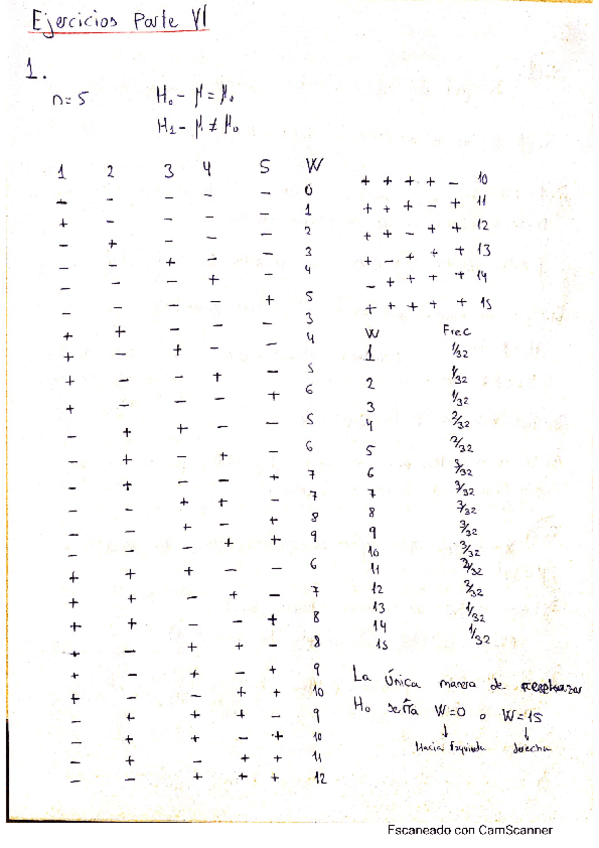 Ejercicios Parte VI
1.
n=5 H₀ - μ = μ₀
H₁ - μ ≠ μ₀
1 2 3 4 5 W
- - - - - 0
+ - - - - 1
- + - - - 2
- - + - - 3
- - - + - 4
- - - - + 5
+ + - - - 3
+ - + - - 4
+ - - + - 5
+ - - - + 6
- + + - - 5
- + - + - 6
- + - - + 7
- - + + - 7
- - + - + 8
- - - + + 9
+ + + - - 6
+ + - + - 7
+ + - - + 8
+ - + + - 8
+ - + - + 9
+ - - + + 10
- + + + - 9
- + + - + 10
- + - + + 11
- - + + + 12
+ + + + - 10
+ + + - + 11
+ + - + + 12
+ - + + + 13
- + + + + 14
+ + + + + 15
W Frec
1 1/32
2 1/32
3 1/32
4 2/32
5 2/32
6 3/32
7 3/32
8 3/32
9 3/32
10 3/32
11 2/32
12 2/32
13 1/32
14 1/32
15
La única manera de rechazar
H₀ sería W=0 o W=15
↓ ↓
Hacia Izquierda derecha
Escaneado con CamScanner